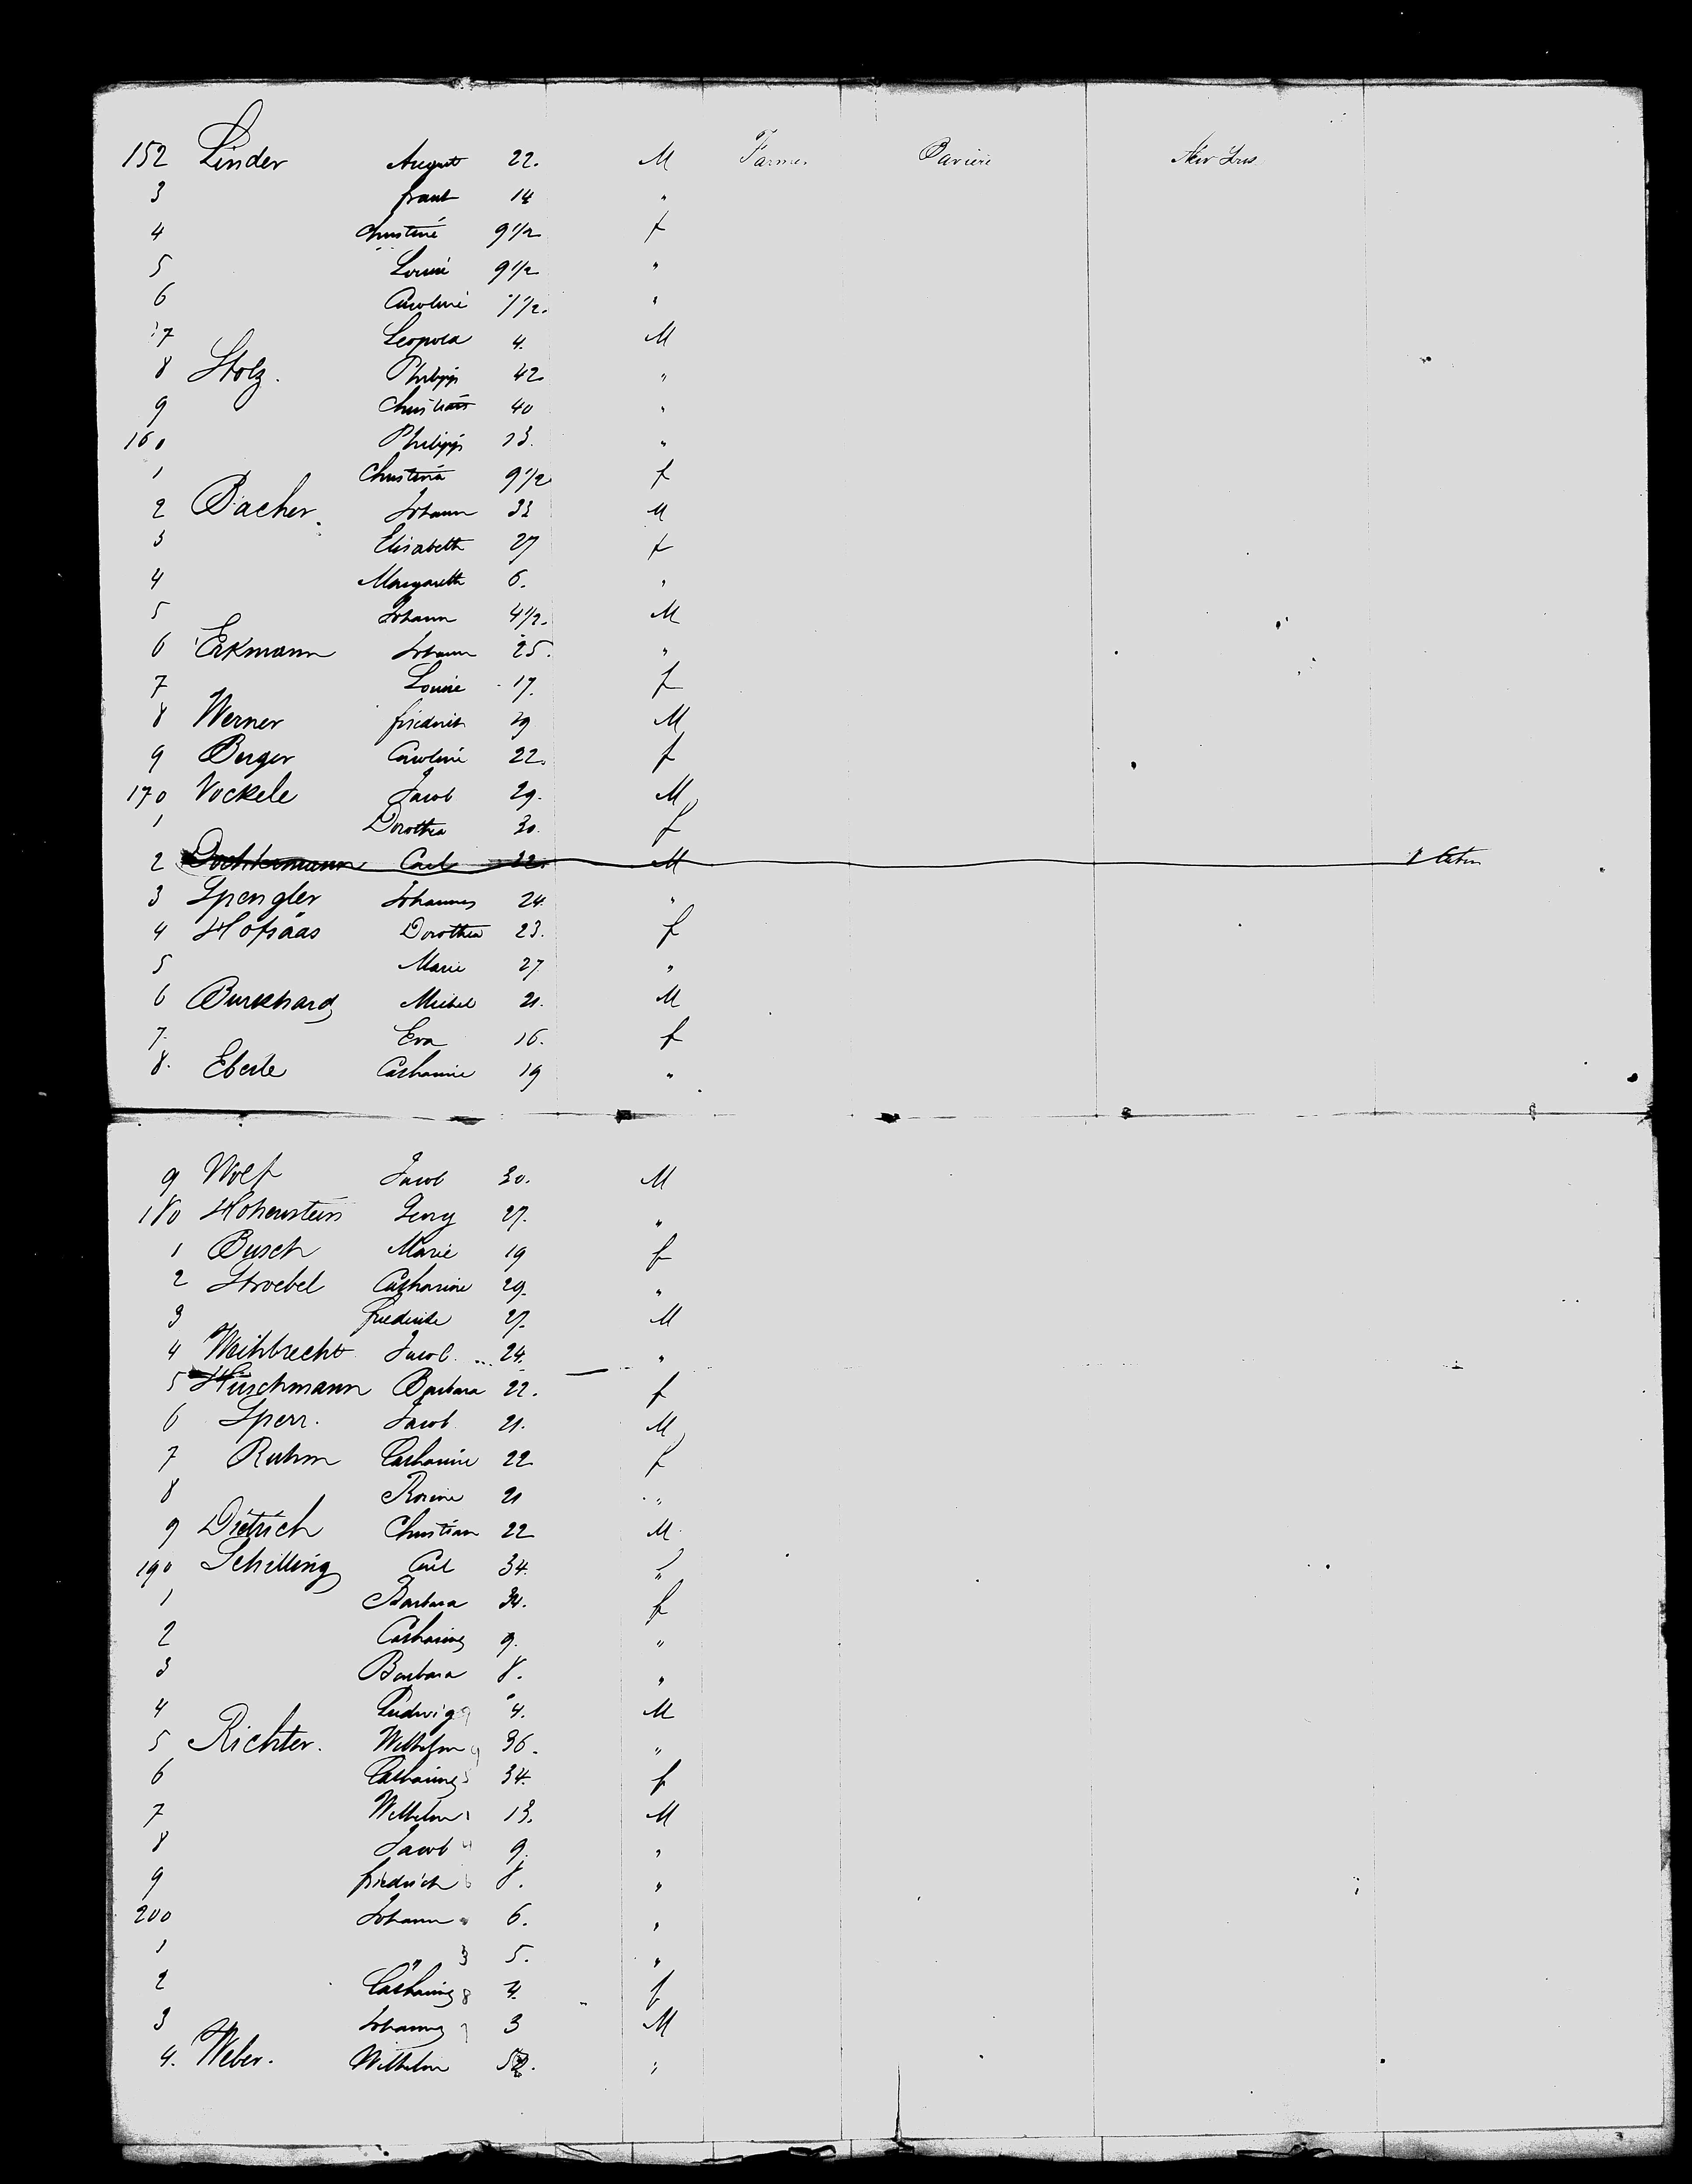 152 Linder August 22. M Farmer Baviere
3 frank 14 "
4 Christine 9 1/2 f
5 Louise 9 1/2 "
6 Caroline 7 1/2. "
7 Leopold 4. M
8 Stolz. Philipp 42 "
9 40 "
160 Philipp 13. "
1 Christina 9 1/2 f
2 Bacher. Johann 33 M
3 Elisabeth 27 f
4 Margareth 6. "
5 Johann 4 1/2. M
6 Erkmann Johann 25. "
7 Louise 17. f
8 Werner friedrich 29 M
9 Berger Caroline 22. f
170 Vockele Jacob 29. M
1 Dorothea 30. f
2 Carl 22 M
3 Spengler Johannes 24. "
4 Hofsäas Dorothea 23. f
5 Marie 27 "
6 Burkhard Michel 21. M
7. Eva 16. f
8. Eberle Catharine 19 "
9 Wolf Jacob 30. M
180 Hohenstein Georg 27. "
1 Busch Marie 19 f
2 Stroebel Catharine 29. "
3 friederike 27. M
4 Weihbrecht Jacob 24. "
5 Hirschmann Barbara 22. f
6 Sperr. Jacob 21. M
7 Ruhm Catharine 22 f
8 Rosine 21 "
9 Dietrich Christian 22 M
190 Schilling Carl 34. "
1 Barbara 34. f
2 Catharine 9. "
3 Barbara 8. "
4 Ludwig 4. M
5 Richter. Wilhelm 36. "
6 Catharine 34. f
7 Wilhelm 13. M
8 Jacob 9. "
9 friedrich 8. "
200 Johann 6. "
1 " 5. "
2 Catharine 4. f
3 Johannes 3 M
4. Weber. Wilhelm "